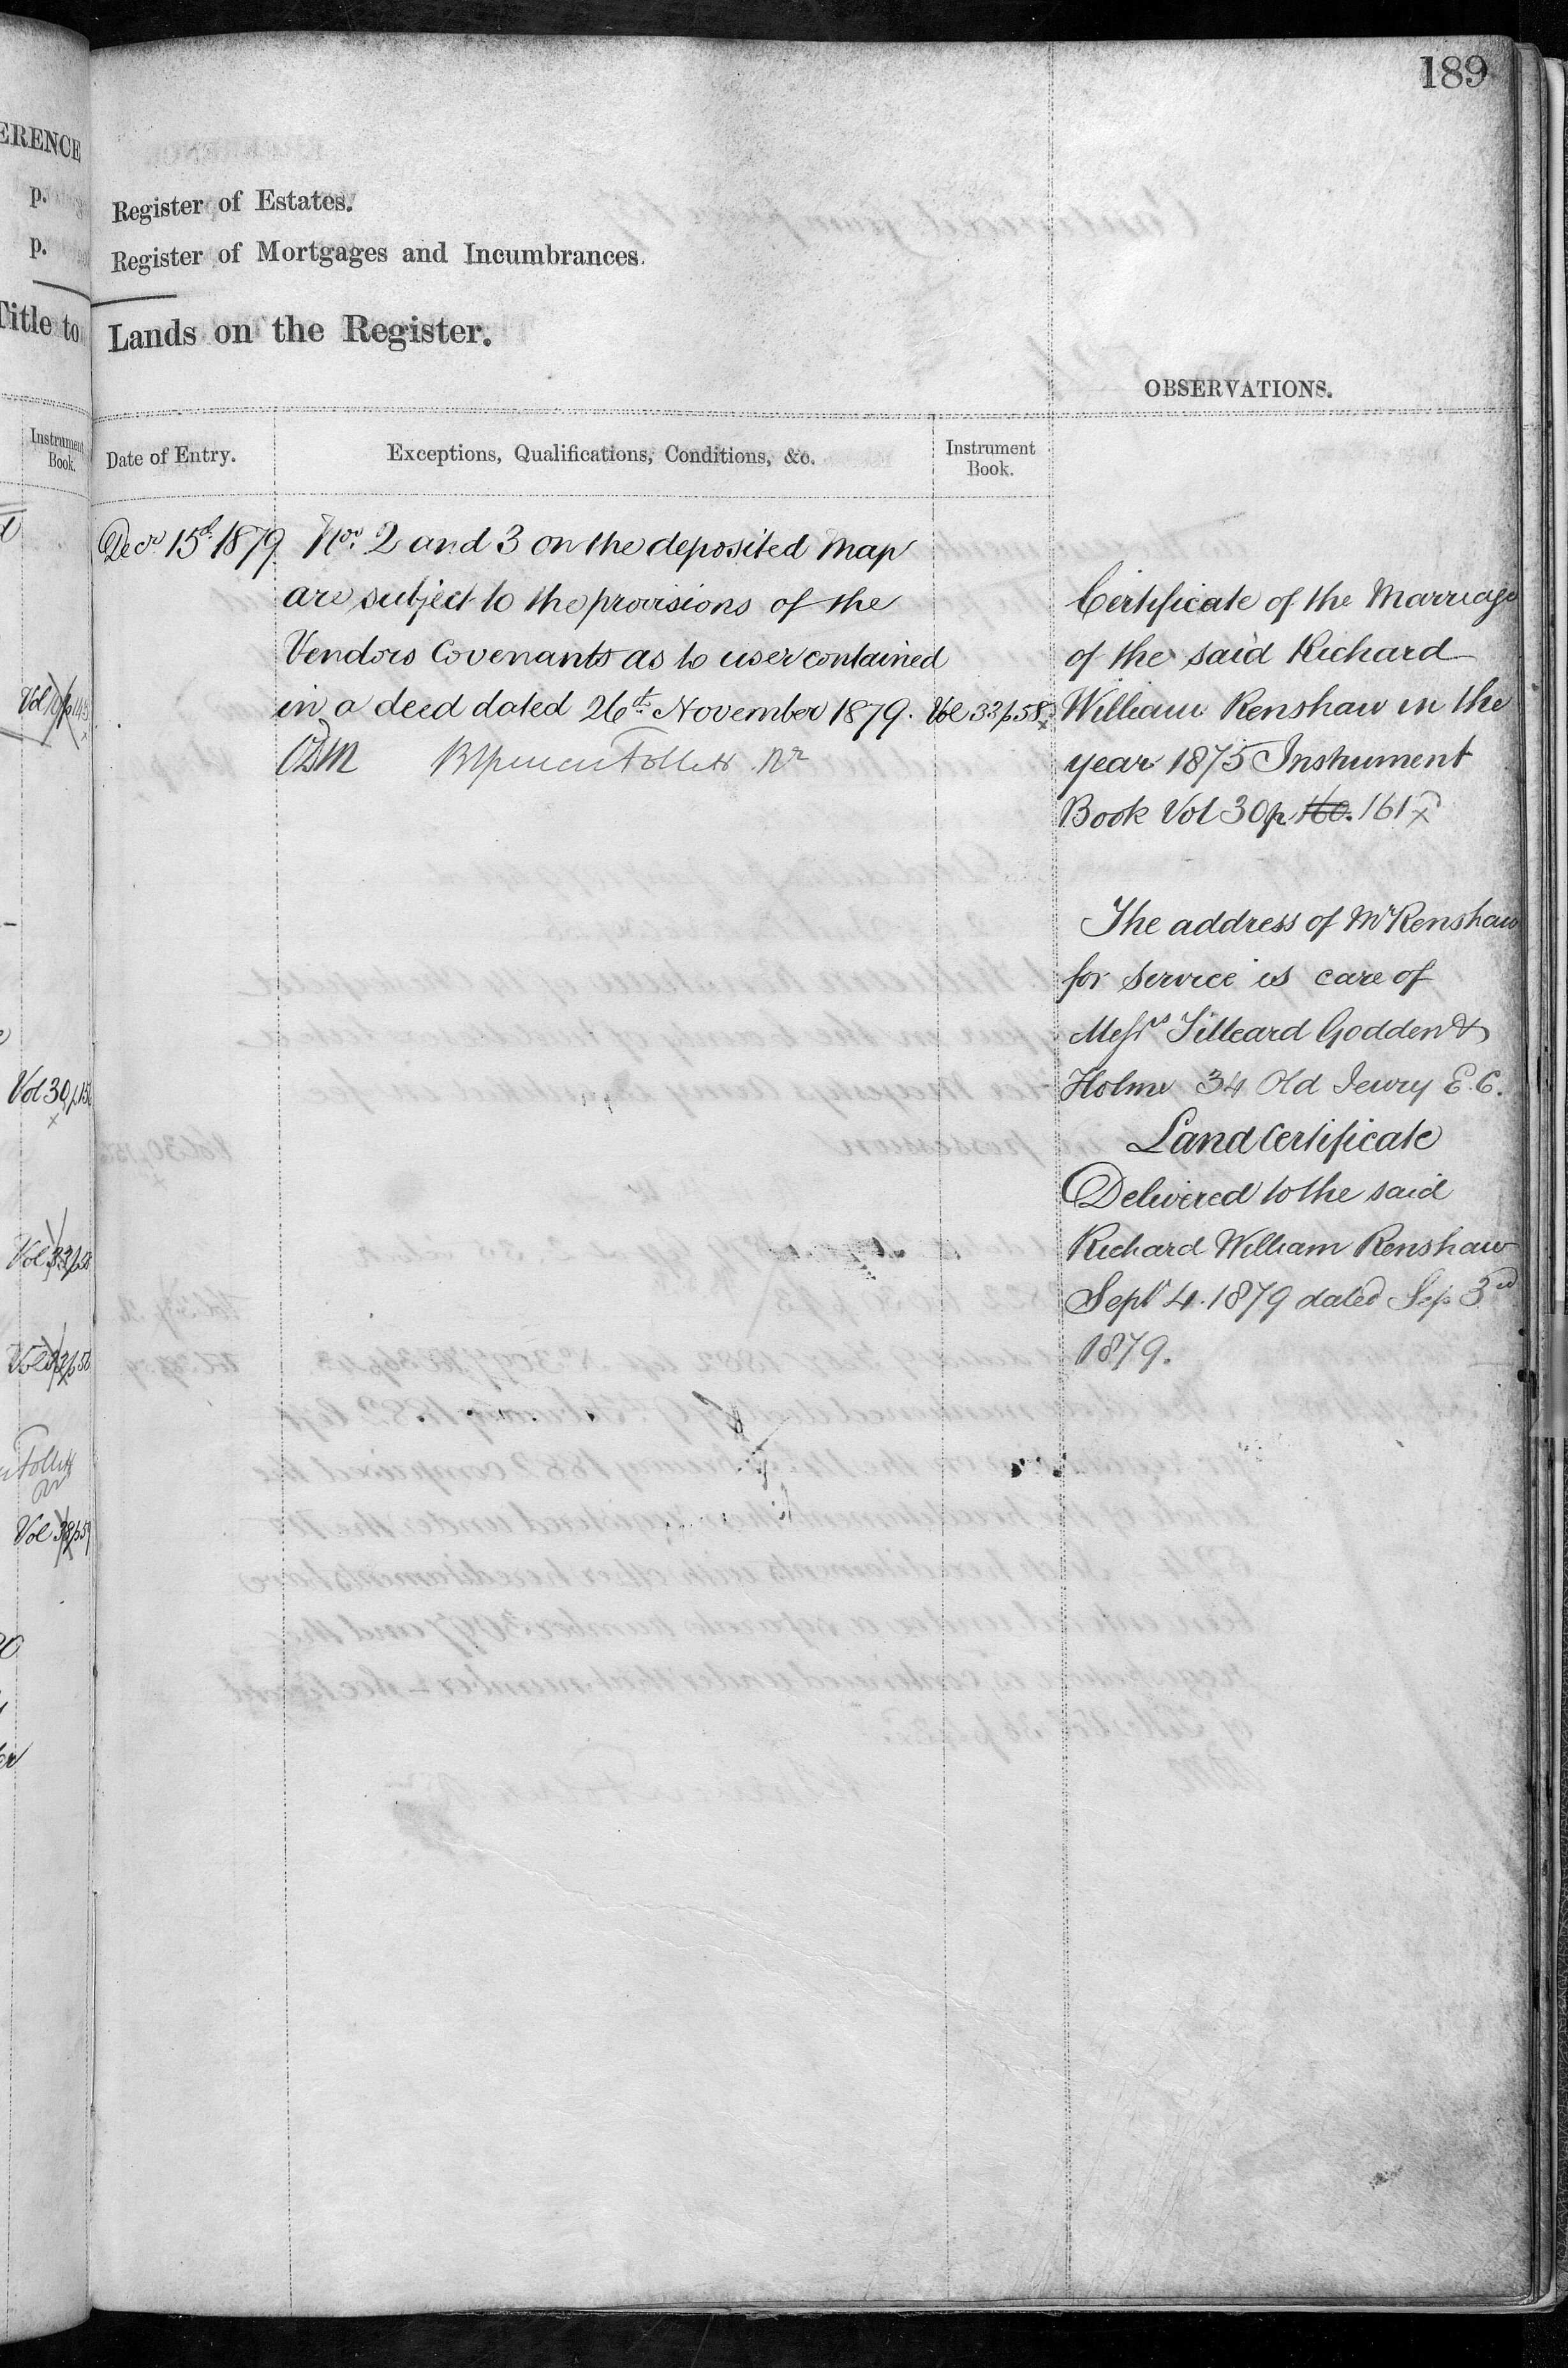 189
ERENCE
p.
p.
Title to
Instrument
Book.
Vol 30 p 15
Register of Estates.
Register of Mortgages and Incumbrances.
Lands on the Register.
OBSERVATIONS.
Date of Entry.
Exceptions, Qualifications, Conditions, &c.
Instrument
Book.
Decr 15th 1879. Nos. 2 and 3 on the deposited Map
are subject to the provisions of the
Vendors Covenants as to user contained
in a deed dated 26th November 1879. Vol 33 p 58
Follett Rr
Certificate of the Marriage
of the said Richard
William Renshaw in the
year 1875 Instrument
Book Vol 30 p 160. 161
The address of Mr Renshaw
for service is care of
Messrs Tilleard Godden &
Holme 34 Old Jewry E.C.
Land Certificate
Delivered to the said
Richard William Renshaw
Sept 4. 1879 dated Sep 3rd
1879.